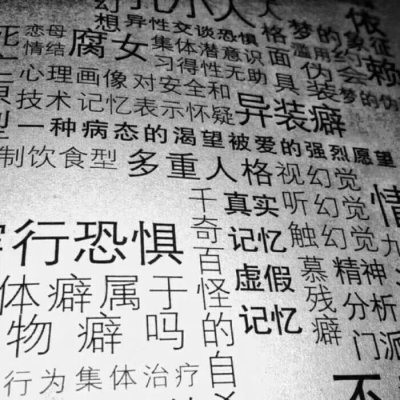 幻
想 异性交谈恐惧 格 梦的象征
依
赖
恋母
情结
腐女
集体潜意识
习得性无助
面
具
滥用
伪
装
约
会
心理画像 对安全和
梦的伪
技术 记忆表示怀疑
异装癖
型 一种病态的渴望被爱的强烈愿望
制饮食型
多重人格
视幻觉
听幻觉
触幻觉
情
行恐惧
千奇百怪的自
真实
记忆
虚假
记忆
慕残癖
精神
分析
门派
九
体癖属于
物癖吗
行为集体治疗
不